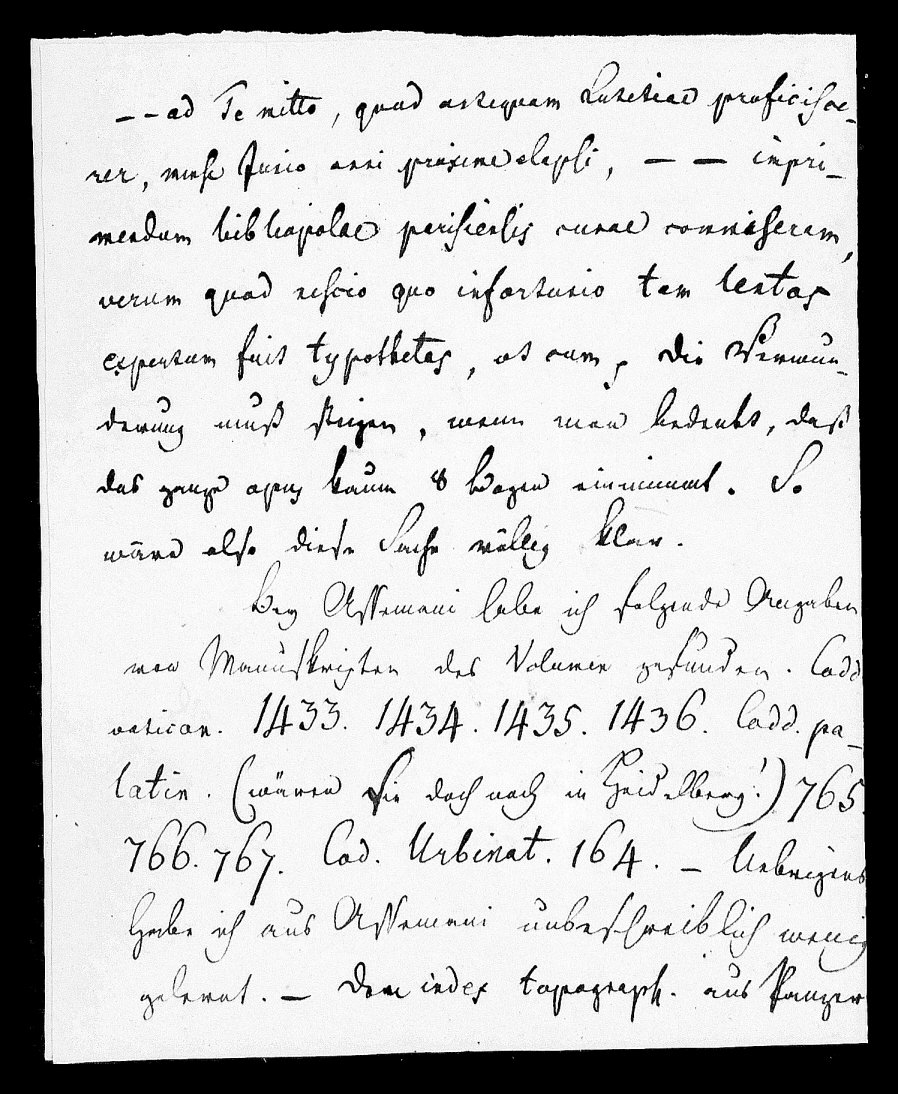 – – ad Te mitto, quod antequam Lutetiae proficisce-
rer, mense Junio anni proxime elapsi, – – impri-
mendum bibliopolae parisiensis curae commiseram,
verum quod nescio quo infortunio tam lentas
expertum fuit typothetas, ut cum, die Verwun-
derung muß steigen, wenn man bedenkt, daß
das ganze opus kaum 8 Bogen einnimmt. So
wäre also diese Sache völlig klar.
Bey Assemani habe ich folgende Angaben
von Manuskripten des Volumen gefunden. Codd
vatican. 1433. 1434. 1435. 1436. Codd. pa-
latin. (wären sie doch noch in Heidelberg!) 765.
766. 767. Cod. Urbinat. 164. – Uebrigens
habe ich aus Assemani unbeschreiblich wenig
gelernt. – Dem index topograph. aus Panzer